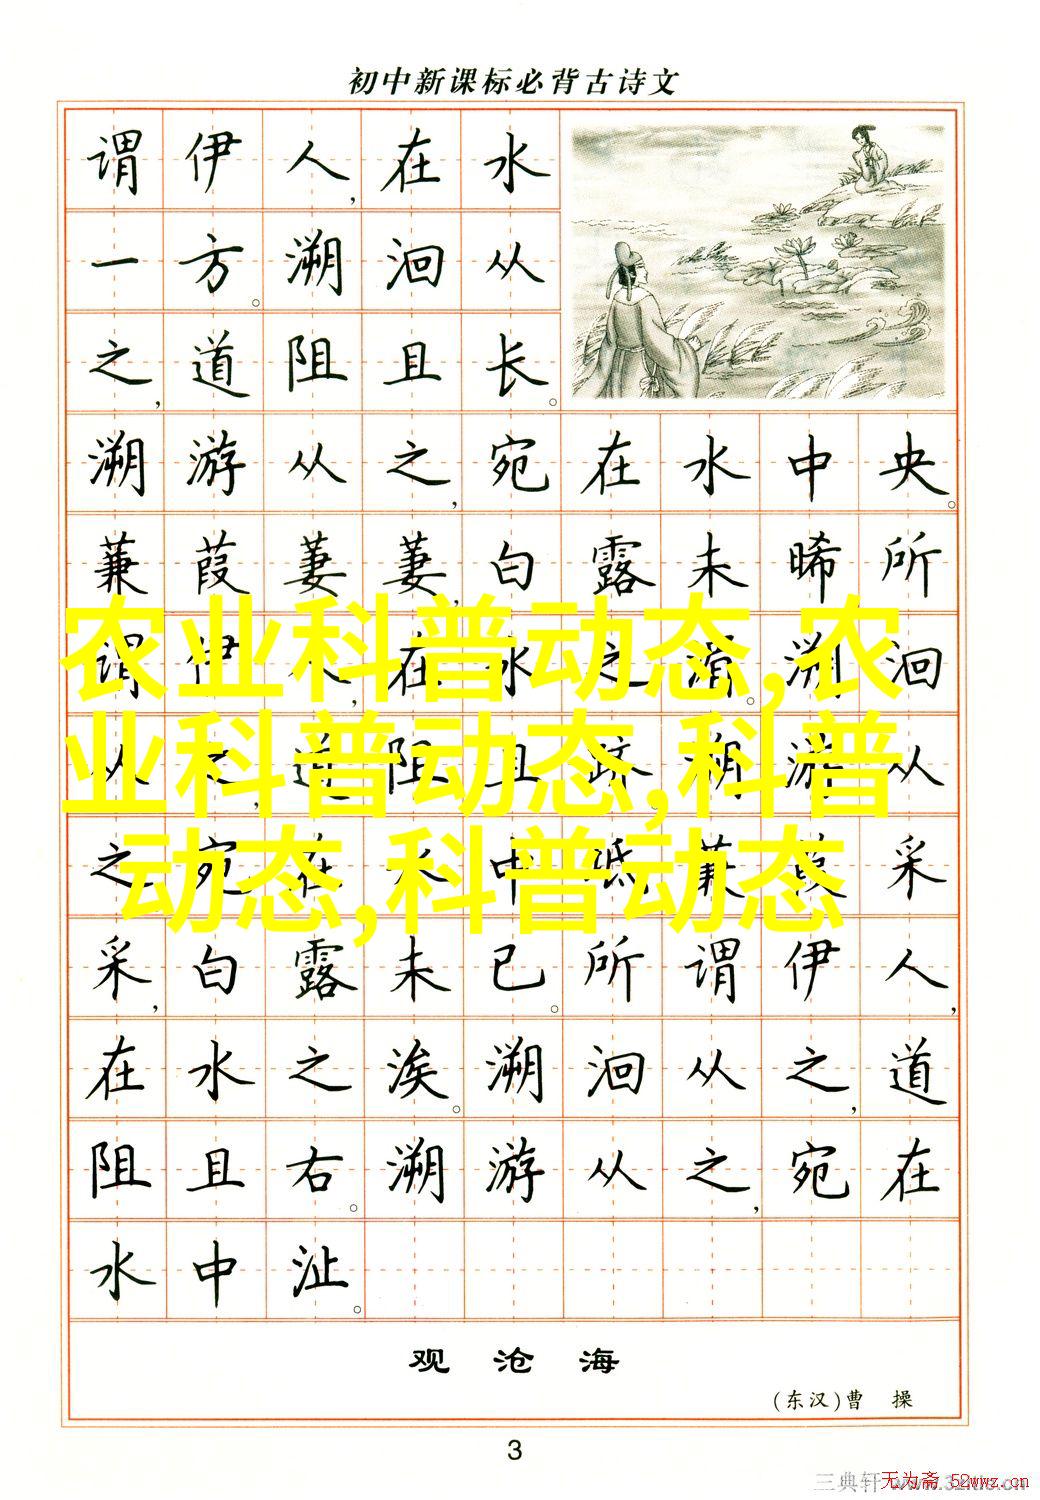 初中新课标必背古诗文
谓伊人,在水
一方。溯洄从
之,道阻且长。
溯游从之,宛在水中央。
蒹葭萋萋,白露未晞,所
谓伊人,在水之湄。溯洄
从之,道阻且跻。溯游从
之,宛在水中坻。蒹葭采
采,白露未已。所谓伊人,
在水之涘。溯洄从之,道
阻且右。溯游从之,宛在
水中沚。
农业科普动态,农
业科普动态,科普
动态,科普动态
观沧海
(东汉)曹操
3
三典轩
无为斋 52wwz.cn